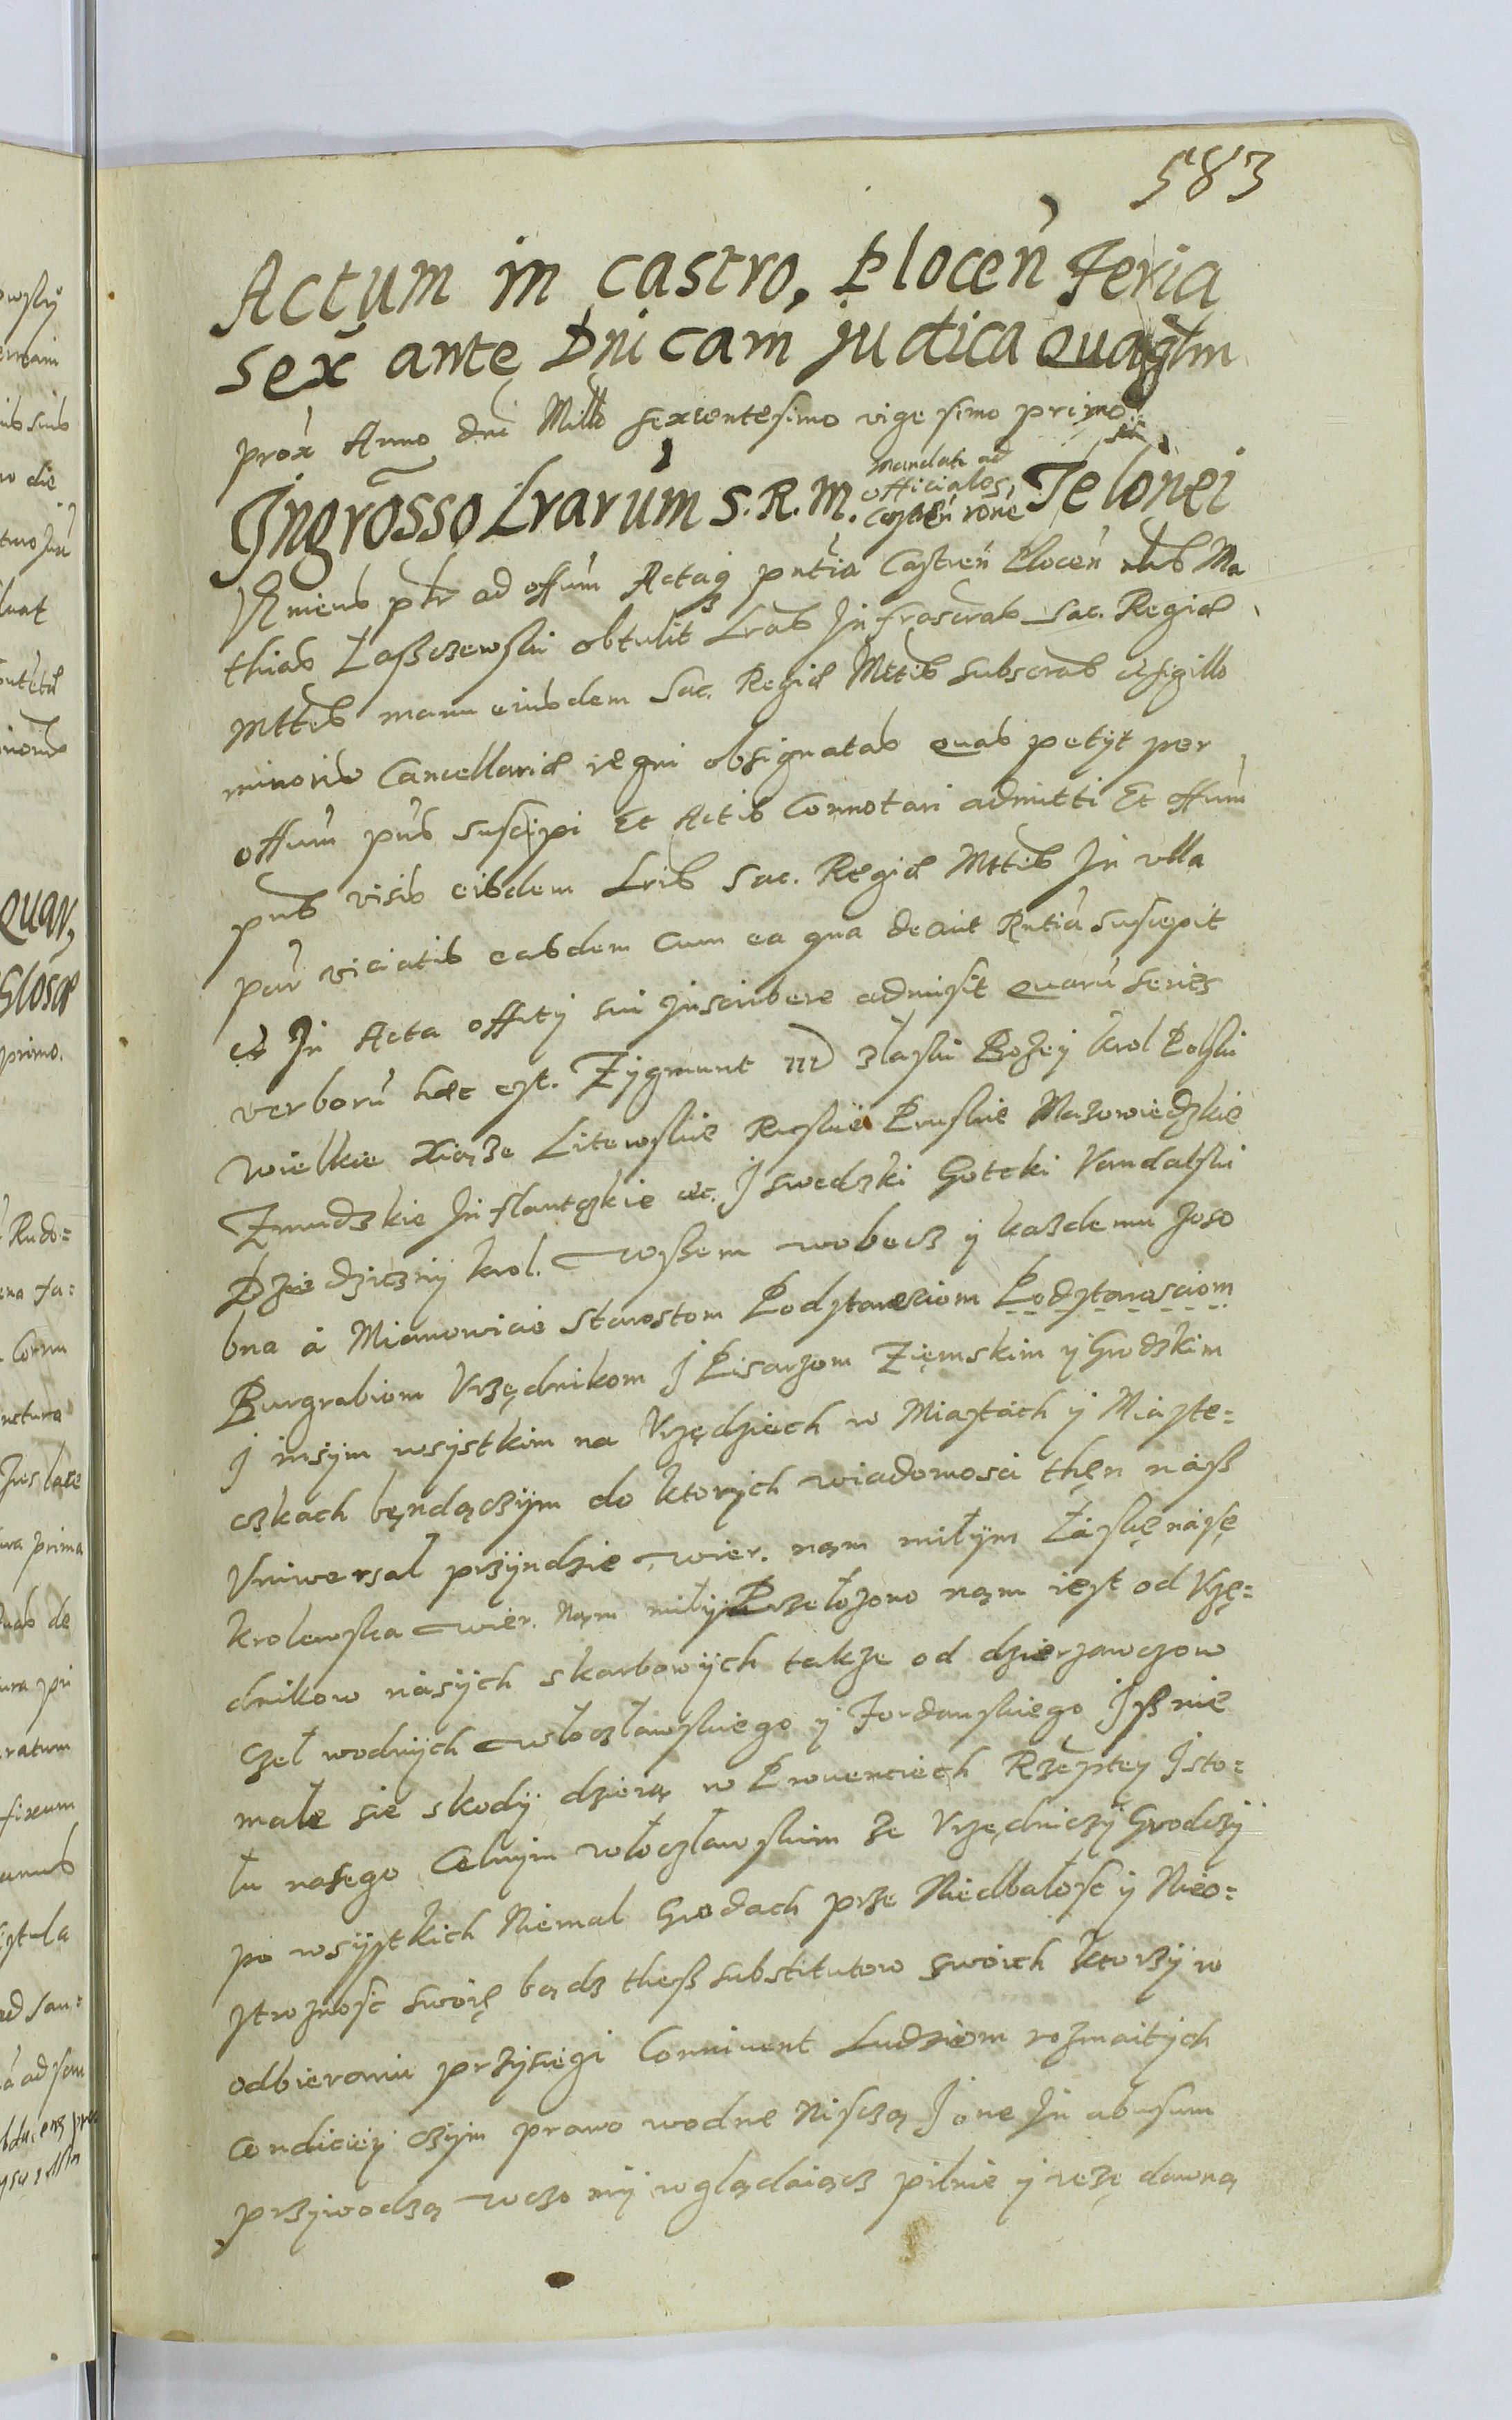 583
Actum in castro, Plocen Feria
sex ante Dnicam judica Quagslm
prox Anno dni Millo sexcentesimo vigesimo primo
Ingrosso Lrarum S. R. M. mandati ad officiales Castren rone Telonei
Veniens ptr ad offum Actaq pntia Castren Plocen nlis Ma
thias Łaszczewski obtulit Lras Infrascras Sac. Regiæ
Mttis manu eiusdem Sac. Regiæ Mttis subscras et sigillo
minoris Cancellariæ regni obsignatas quas petyt per
offum pns suscipi Et Actis Connotari admitti Et offum
pns visis eisdem Lris Sac. Regiæ Mttis In vlla
par viciatis easdem cum ea qua decuit Rntia suscepit
et In Acta officij sui inscribere admisit quaru series
verboru hæc est. Zygmunt III z łaski Bożey krol Polski
wielkie xiąże Litewskie Ruskie Pruskie Mazowiedzkie
Zmudzkie Inflantczkie etc. I swedzki Gotcki Vandalski
Dziedziczny krol. wszem wobecz y każdemu zoso
bna á Mianowicie Starostom Podstarosciom Podstarosciom
Burgrabiom Vrzędnikom I Pisarzom Ziemskim y Grodzkim
I inszym wsystkim na Vrzędziech w Miastach y Miaste=
czkach bęndączym do ktorych wiadomosci thęn nász
Vniwersał przyndzie wier. nąm miłym łáskę násę
krolewska wier. Nąm miły Przełożono nąm iest od Vrzę=
dnikow násych skarbowych także od dzierzawczow
czeł wodnych włoczławskiego y Fordanskiego Isz nie
małe sie skody dzieią w Prouenciech Rzeptey I sto=
łu nasego Celnym włoczławskim ze Vrzędniczy Grodczy
po wsystkich Niemal Grodach prze Niedbałosc y Nieo=
strożnosc swoię bądz thesz substitutow swoich ktorzy w
odbieraniu przysiegi Conniuent Ludziom rozmaitych
condiciey czym prawo wodne Nisczą I one In abusum
przywodzą wczo my wglądaiącz pilnie y rezę dawną